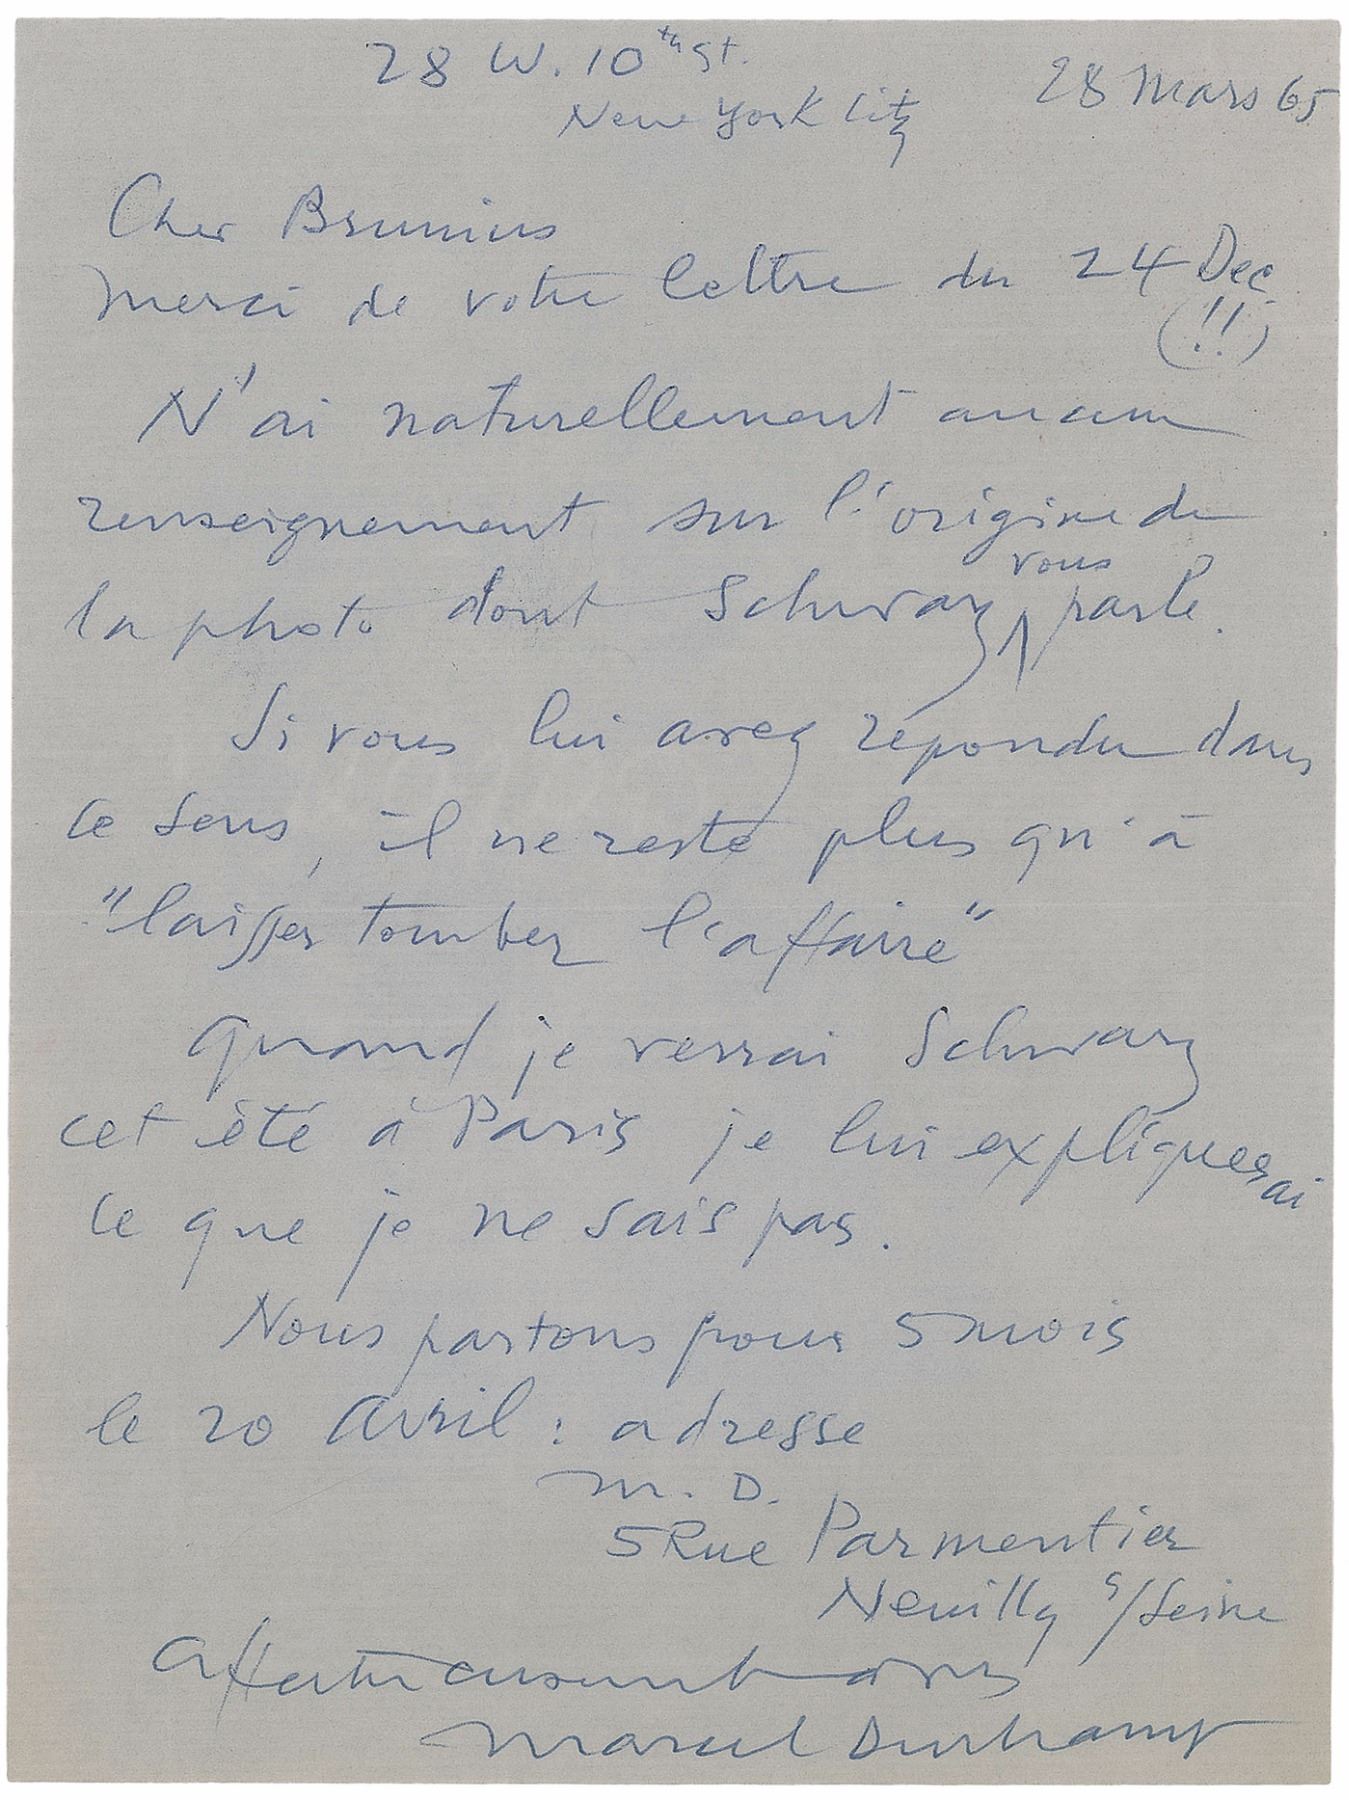 28 W. 10th St.
New York City
28 Mars 65
Cher Brunius
Merci de votre lettre du 24 Dec
(!!)
N'ai naturellement aucun
renseignement sur l'origine de
la photo dont Schwarz vous parle.
Si vous lui avez répondu dans
ce sens, il ne reste plus qu'à
"laisser tomber l'affaire"
Quand je verrai Schwarz
cet été à Paris je lui expliquerai
ce que je ne sais pas.
Nous partons pour 5 mois
le 20 Avril : adresse
M. D.
5 Rue Parmentier
Neuilly s/Seine
Affectueusement
Marcel Duchamp